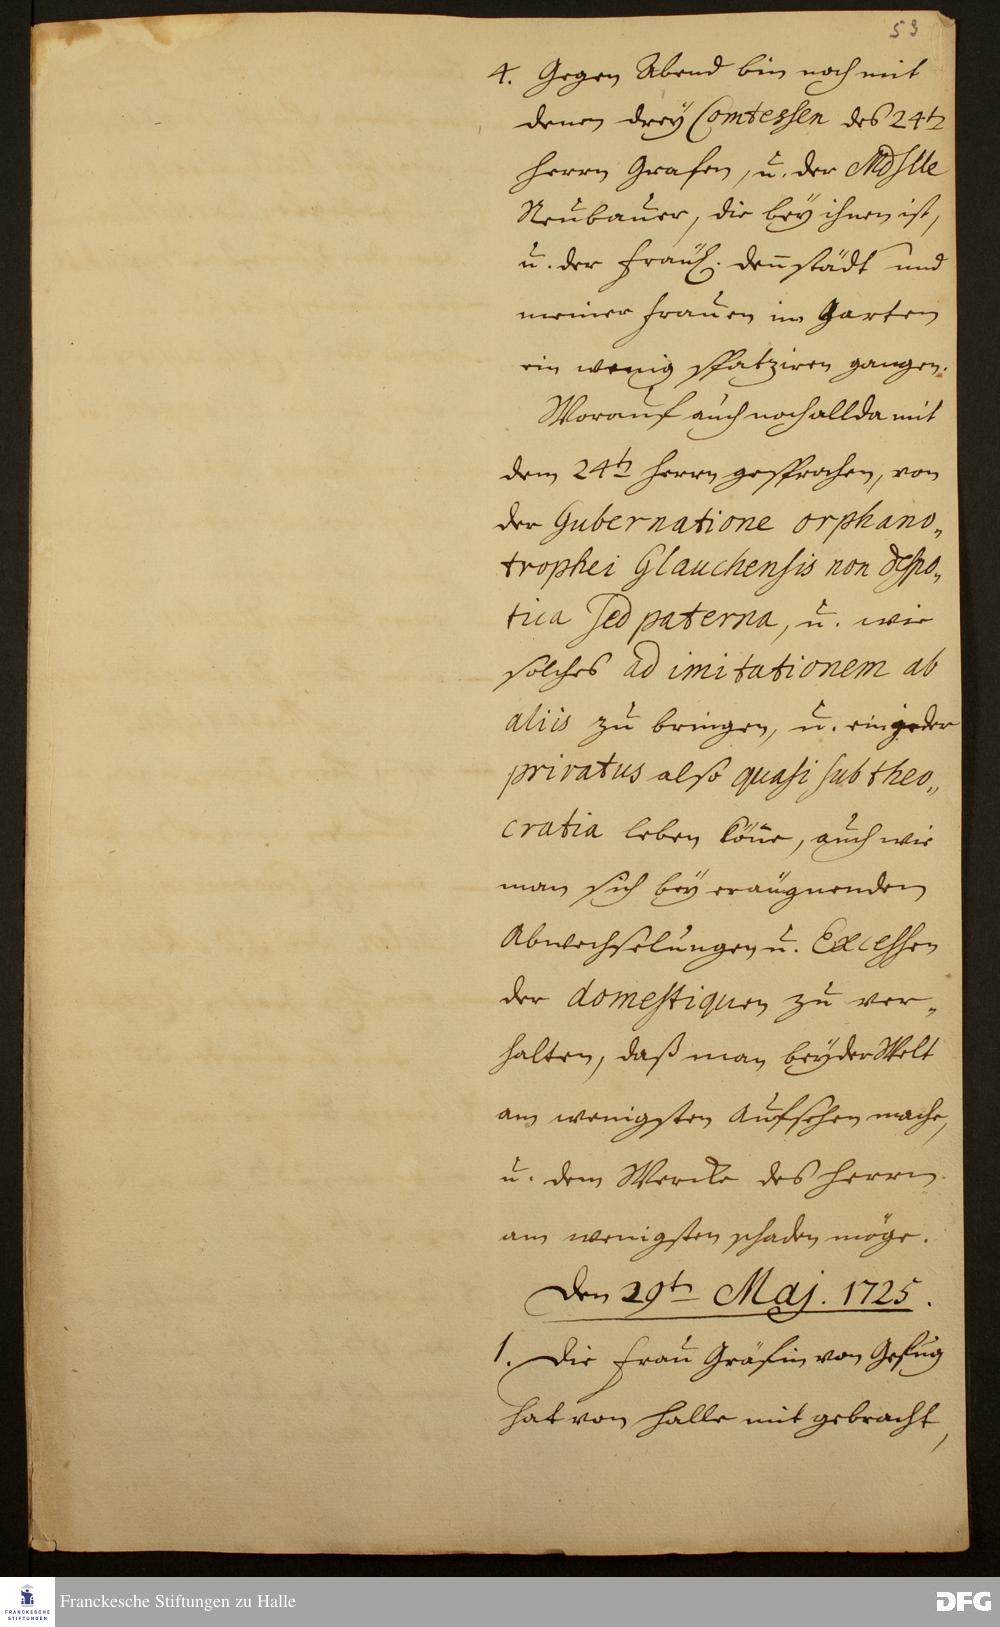 53
4. Gegen Abend bin noch mit
denen drey Comtessen des 24t
Herrn Grafen, u. der Mdslle
Neubauer, die bey ihnen ist,
u. der Fräul. Dennstädt und
meiner Frauen im Garten
ein wenig spatziren gangen.
Worauf auch noch allda mit
dem 24t Herrn gesprochen, von
der Gubernatione orphano„
trophei Glauchensis non despo„
tica sed paterna, u. wie
solches ad imitationem ab
aliis zu bringen, u. ein jeder
privatus also quasi sub theo„
cratia leben köne, auch wie
man sich bey eräugnenden
Abwechselungen u. Excessen
der domestiquen zu ver„
halten, daß man bey der Welt
am wenigsten Aufsehen mache,
u. dem Wercke des Herrn
am wenigsten schaden möge.
Den 29t Maj. 1725.
1. Die Frau Gräfin von Gefug
hat von Halle mit gebracht,
FRANCKESCHE STIFTUNGEN
Franckesche Stiftungen zu Halle
DFG